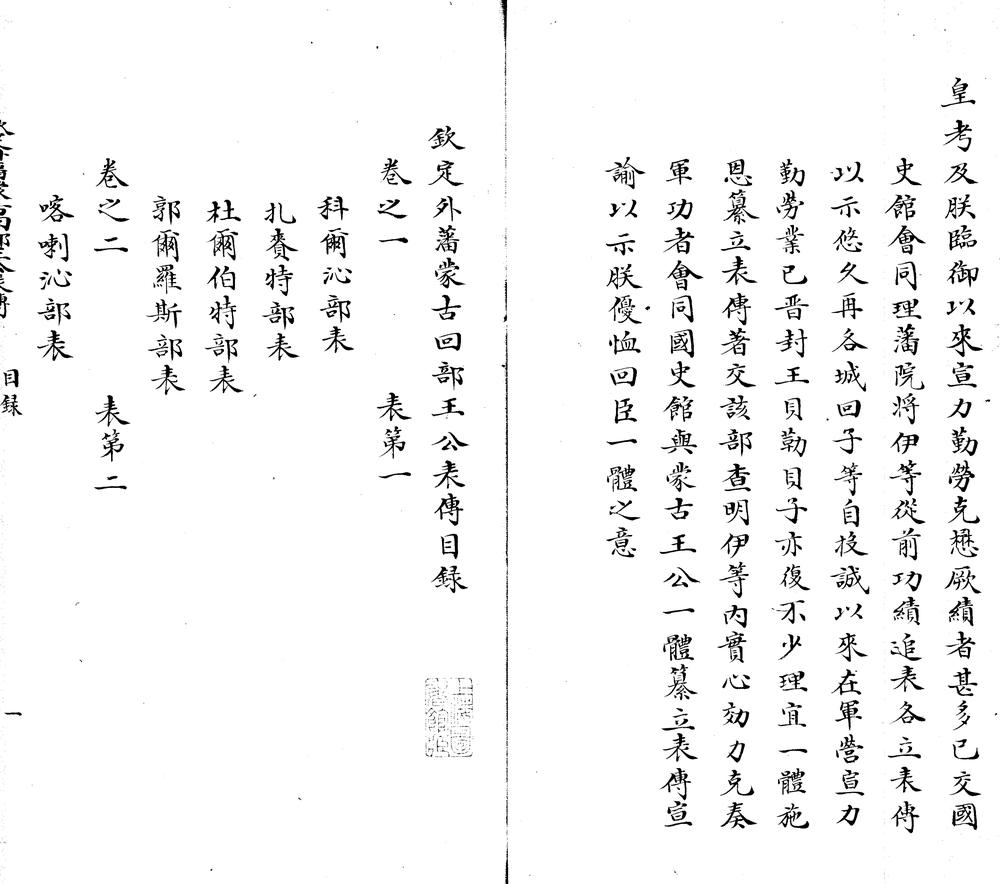 皇考及朕臨御以來宣力勤勞克懋厥績者甚多已交國
史館會同理藩院將伊等從前功績追表各立表傳
以示悠久再各城回子等自投誠以來在軍營宣力
勤勞業已晋封王貝勒貝子亦復不少理宜一體施
恩纂立表傳著交該部查明伊等內實心効力克奏
軍功者會同國史館與蒙古王公一體纂立表傳宣
諭以示朕優恤回臣一體之意
欽定外藩蒙古回部王公表傳目録
卷之一 表第一
科爾沁部表
扎賚特部表
杜爾伯特部表
郭爾羅斯部表
卷之二 表第二
喀喇沁部表
目録 一